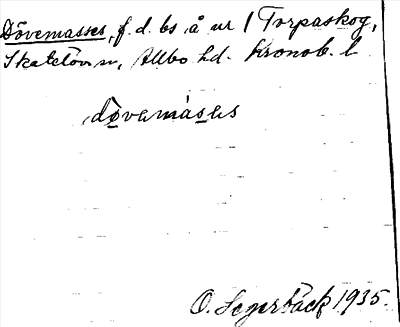 Dövemasses, f.d. bs å ur 1 Torpaskog,
Skatelöv sn, Allbo hd. Kronob. l
dövemásas
O. Segerbäck 1935.